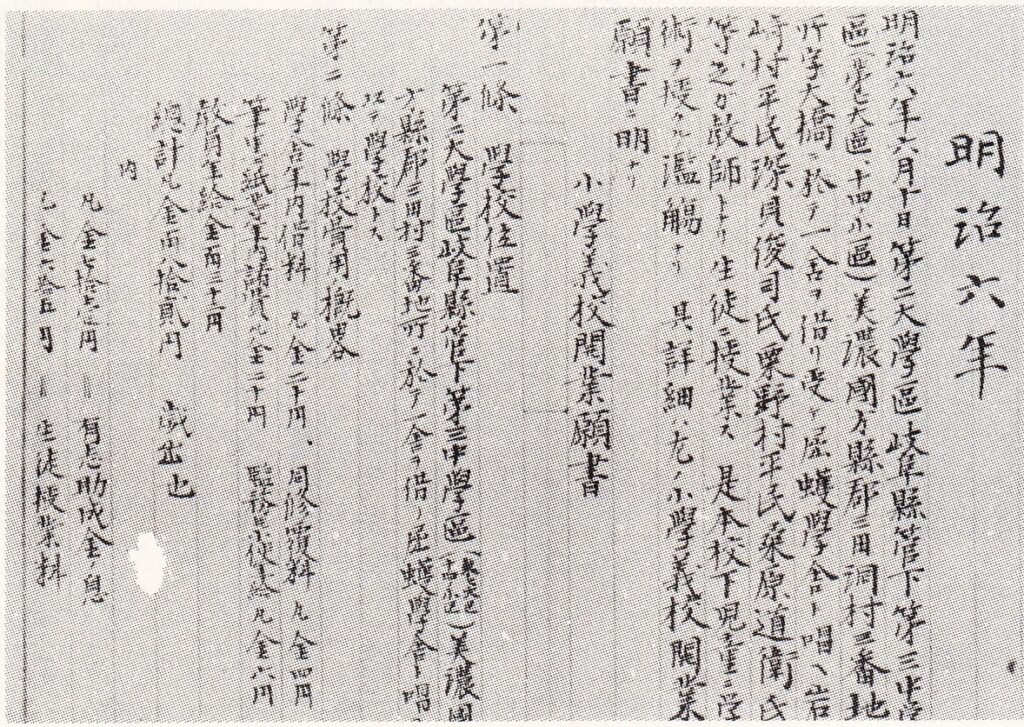 明治六年
明治六年六月十日第二大學區岐阜縣管下第三中學
區(第七大區、十四小區)美濃國方縣郡三田洞村三番地
所字大橋ニ於テ一舎ヲ借リ受ケ屈蠖學舎ト唱ヘ岩
崎村平民深貝俊司氏粟野村平民桒原道衛氏
等之カ敎師トナリ生徒ニ授業ス 是本校下児童ニ学
術ヲ授クル濫觴ナリ 其詳細ハ左ノ小學義校開業
願書ニ明ナリ
小學義校開業願書
第一條 學校位置
第二大學區岐阜縣管下第三中學區(第七大區十四小區)美濃國
方縣郡三田村三番地所ニ於テ一舎ヲ借リ屈蠖學舎ト唱
以テ學校トス
第二條 學校費用概畧
學舎年内借料 凡金二十円、同修覆料 凡金四円
筆墨紙等年内諸費凡金二十円 監務並小使给凡金六円
敎員年給金百三十二円
總計凡金百八拾貳円 歳出也
内
凡金七拾壱円 〃 有志助成金ノ息
凡金六拾五円 〃 生徒授業料